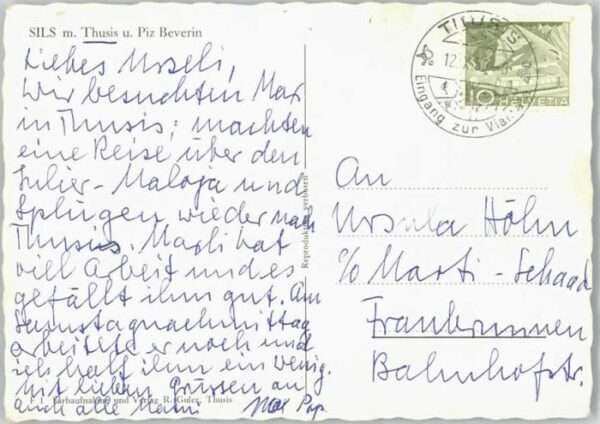 SILS m. Thusis u. Piz Beverin
Liebes Urseli,
Wir besuchten Max
in Thusis; machten
eine Reise über den
Julier-Maloja und
Splügen wieder nach
Thusis. Marli hat
viel Arbeit und es
gefällt ihm gut. Am
Samstagnachmittag
arbeitete er noch und
ich half ihm ein wenig.
Mit lieben Grüssen an
auch alle
Max Papi
F 1 Farbaufnahme und Verlag R. Guler, Thusis
Reproduktion verboten
THUSIS
Eingang zur Via
10 HELVETIA
An
Ursula Höhn
c/o Marti-Schaad
Fraubrunnen
Bahnhofstr.